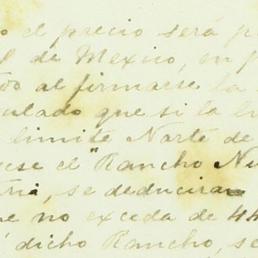 o el precio será p
l de Mexico, en p
do al firmarse la
ulado que si la li
limite Norte de
ese el "Rancho Nu
tria, se deducira
e no exceda de 44
dicho Rancho, se